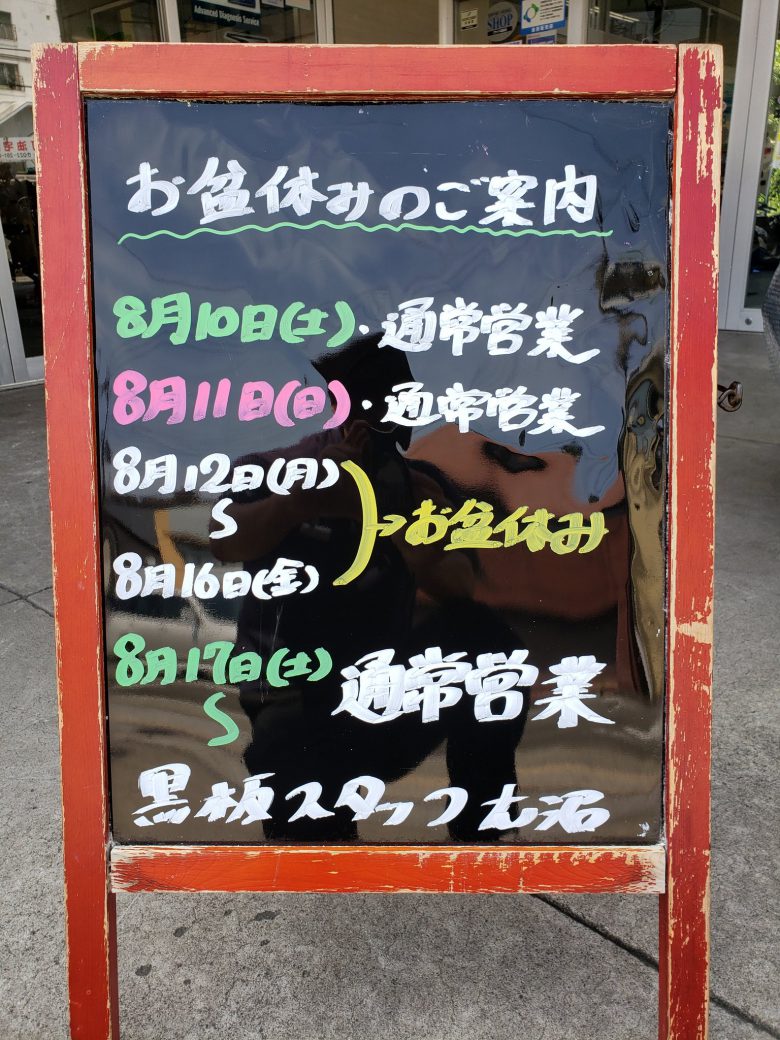 Advanced Diagnosis Service
SHOP
お盆休みのご案内
8月10日(土)・通常営業
8月11日(日)・通常営業
8月12日(月)
S
8月16日(金)
→お盆休み
8月17日(土)
S
通常営業
黒板スタッフ